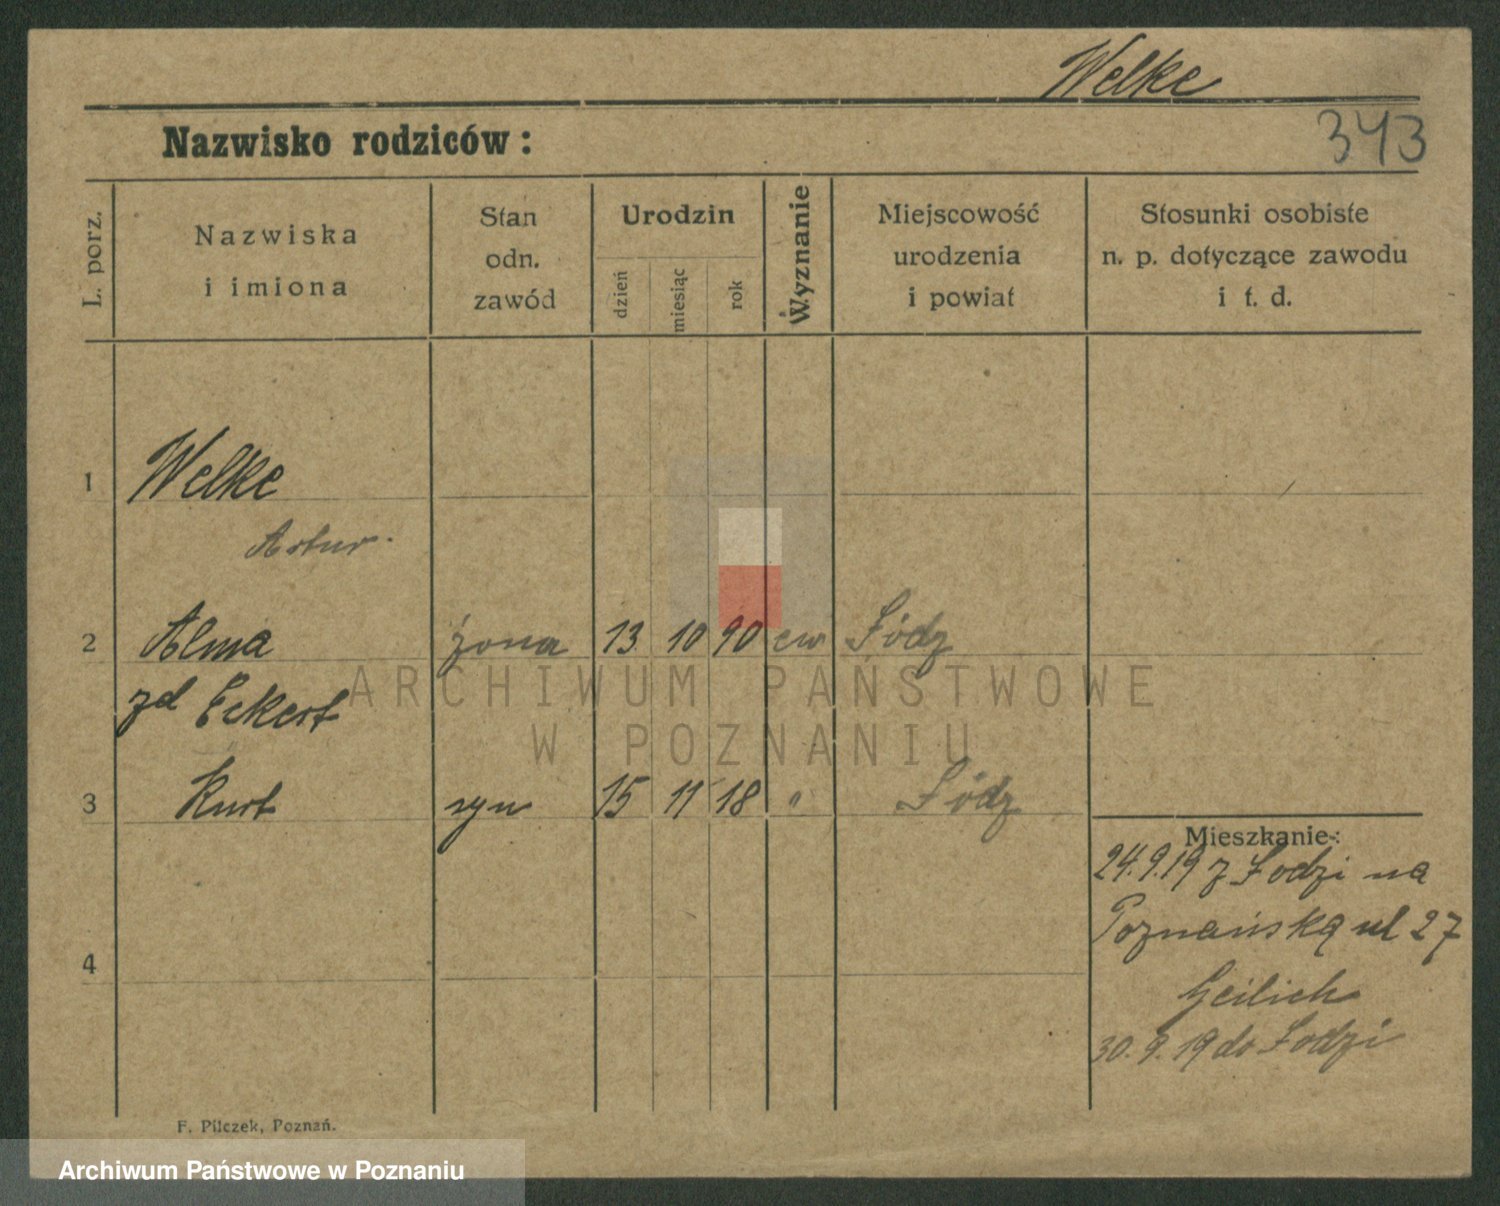 Welke
Nazwisko rodziców:
343
L. porz.
Nazwiska
i imiona
Stan
odn.
zawód
Urodzin
dzień
miesiąc
rok
Wyznanie
Miejscowość
urodzenia
i powiat
Stosunki osobiste
n. p. dotyczące zawodu
i t. d.
1 Welke
Artur
2 Alma żona 13 10 90 ew Łódz
zd Eckert
3 Kurt syn 15 11 18 " Łódz
Mieszkanie:
24.9.19 z Łodzi na
Poznańską ul 27
Geilich
30.9.19 do Łodzi
4
F. Pilczek, Poznań.
ARCHIWUM PAŃSTWOWE
W POZNANIU
Archiwum Państwowe w Poznaniu